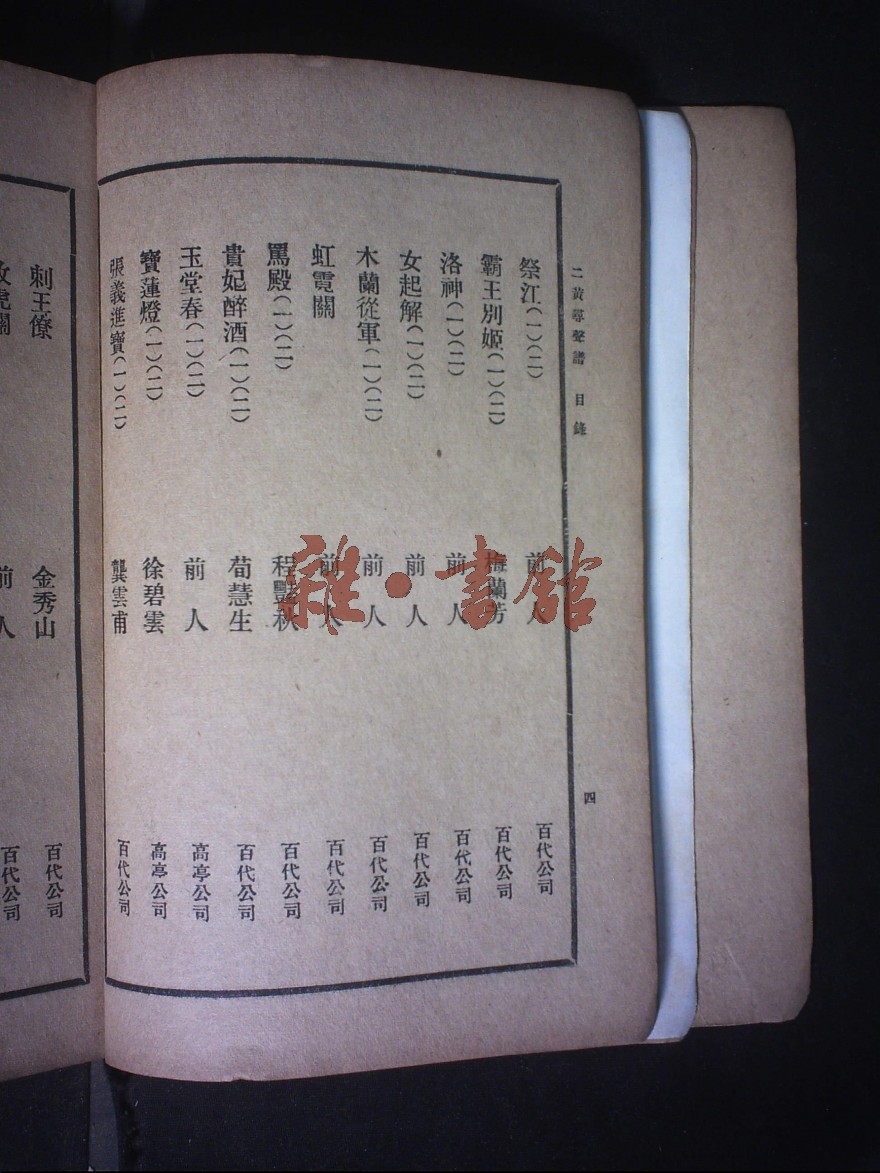 二黃尋聲譜 目錄
四
祭江(一)(二) 前人 百代公司
霸王別姬(一)(二) 梅蘭芳 百代公司
洛神(一)(二) 前人 百代公司
女起解(一)(二) 前人 百代公司
木蘭從軍(一)(二) 前人 百代公司
虹霓關 前人 百代公司
罵殿(一)(二) 程豔秋 百代公司
貴妃醉酒(一)(二) 荀慧生 百代公司
玉堂春(一)(二) 前人 高亭公司
寶蓮燈(一)(二) 徐碧雲 高亭公司
張義進寶(一)(二) 龔雲甫 百代公司
刺王僚 金秀山 百代公司
虎關 前人 百代公司
雜·書館